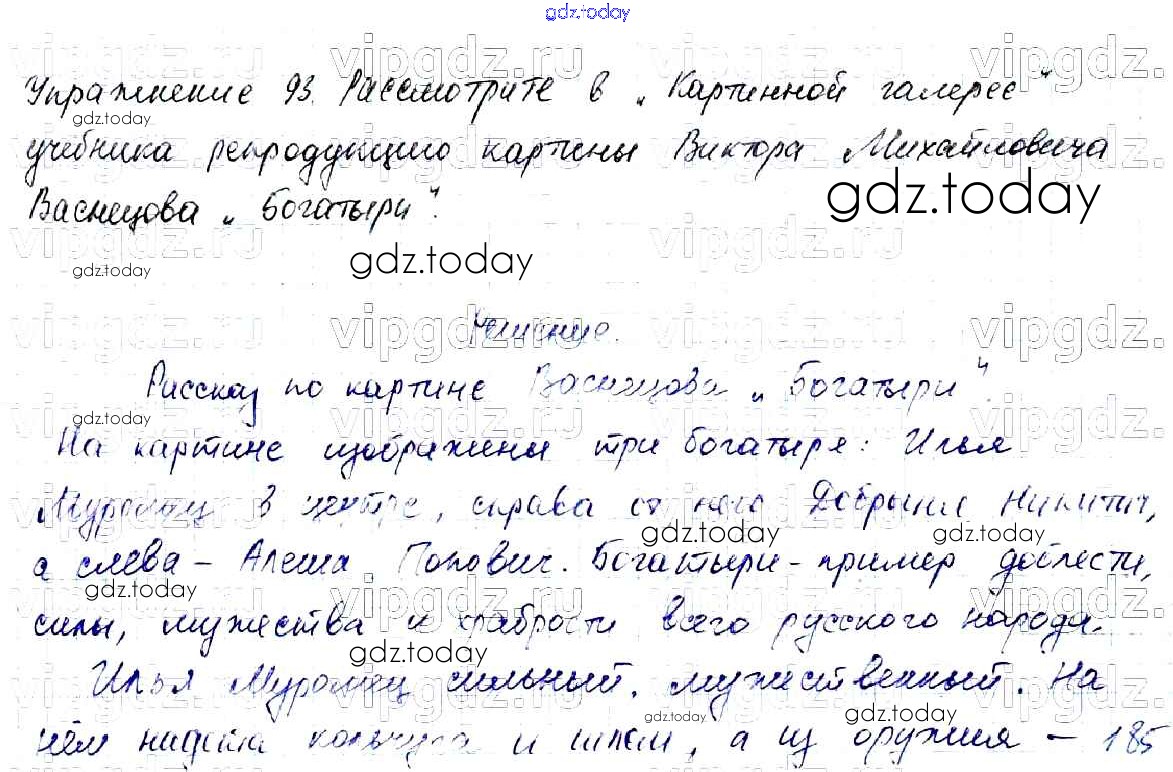 gdz.today
Упражнение 93. Рассмотрите в „Картинной галерее"
учебника репродукцию картины Виктора Михайловича
Васнецова „Богатыри".
Решение.
Рассказ по картине Васнецова „Богатыри".
На картине изображены три богатыря: Илья
Муромец в центре, справа от него Добрыня Никитич,
а слева – Алеша Попович. Богатыри – пример доблести,
силы, мужества и храбрости всего русского народа.
Илья Муромец сильный, мужественный. На
нём надета кольчуга и шлем, а из оружия – 185
vipgdz.ru
gdz.today